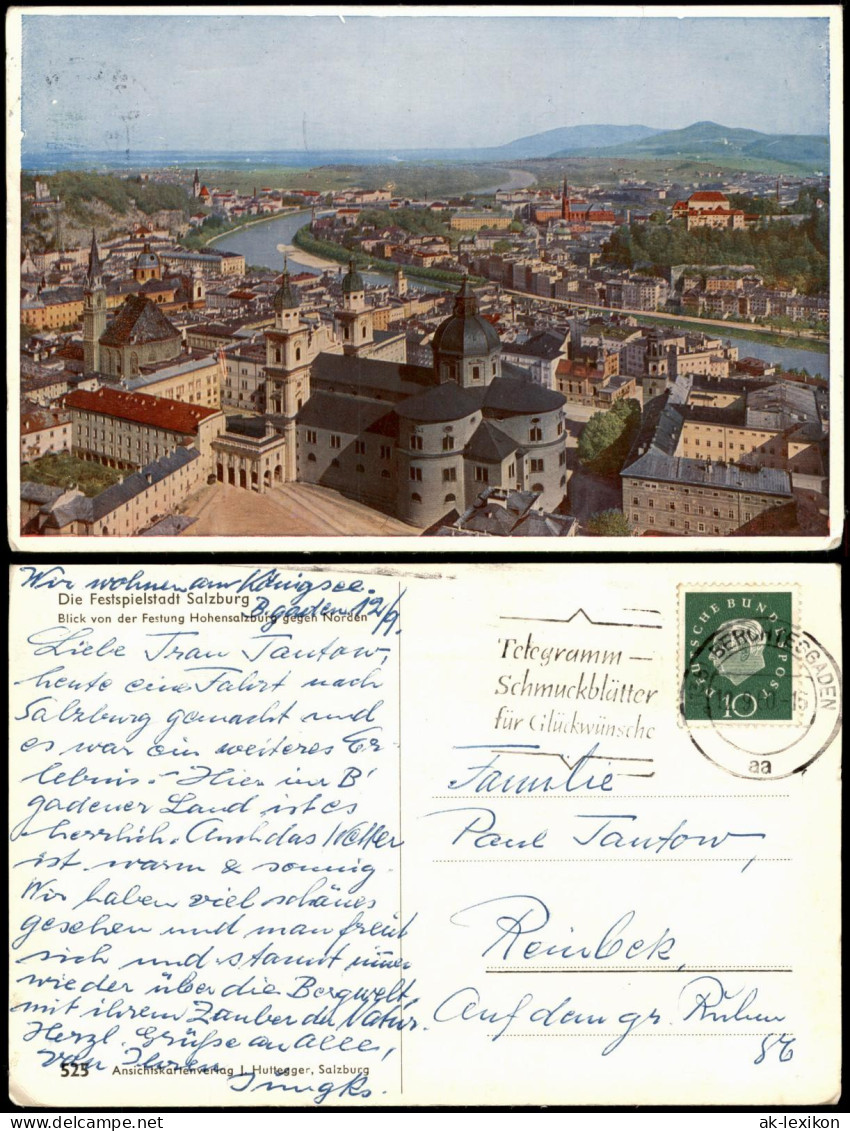 Wir wohnen am Königsee.
Die Festspielstadt Salzburg
B'gaden 12/9.
Blick von der Festung Hohensalzburg gegen Norden
Liebe Frau Tantow,
heute eine Fahrt nach
Salzburg gemacht und
es war ein weiteres Er-
lebnis. Hier im B'
gadener Land ist es
herrlich. Auch das Wetter
ist warm & sonnig.
Wir haben viel schönes
gesehen und man freut
sich und staunt immer
wieder über die Bergwelt,
mit ihrem Zauber der Natur.
Herzl. Grüße an Alle,
von Ihren
Jungks.
525 Ansichtskartenverlag J. Huttegger, Salzburg
Telegramm —
Schmuckblätter
für Glückwünsche
DEUTSCHE BUNDESPOST
10
BERCHTESGADEN
aa
Familie
Paul Tantow,
Reinbek,
Auf dem gr. Ruhm
86
ak-lexikon